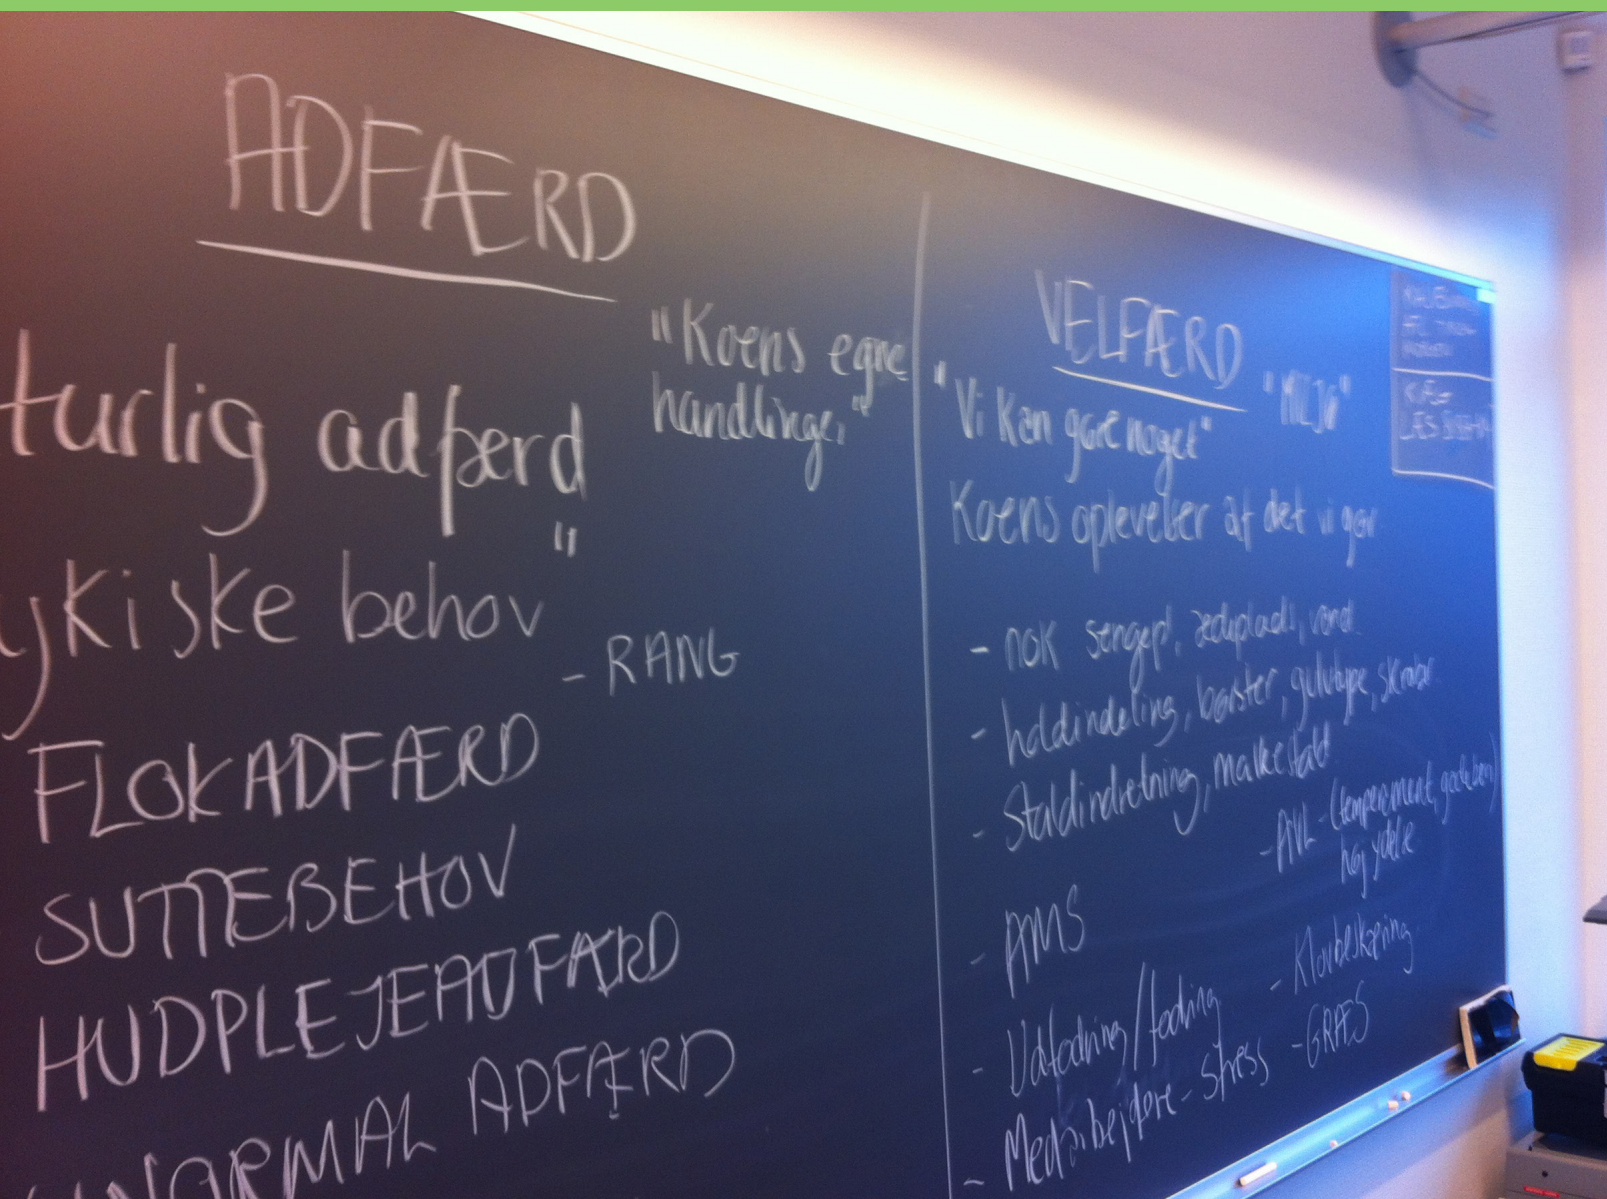 ADFÆRD
"Koens egne
handlinger"
turlig adfærd
ykiske behov"
- RANG
FLOKADFÆRD
SUTTEBEHOV
HUDPLEJEADFÆRD
NORMAL ADFÆRD
VELFÆRD
"MILJØ"
"Vi kan gøre noget"
Koens oplevelser af det vi gør
- nok sengepl, ædeplads, vand
- holdindeling, børster, gulvtype, skraber
- Staldindretning, malkestald
- AVL - (temperement, gode ben)
høj ydelse
- AMS
- Klovbeskæring
- Udfodring / fodring
- GRÆS
- Medarbejdere - stress